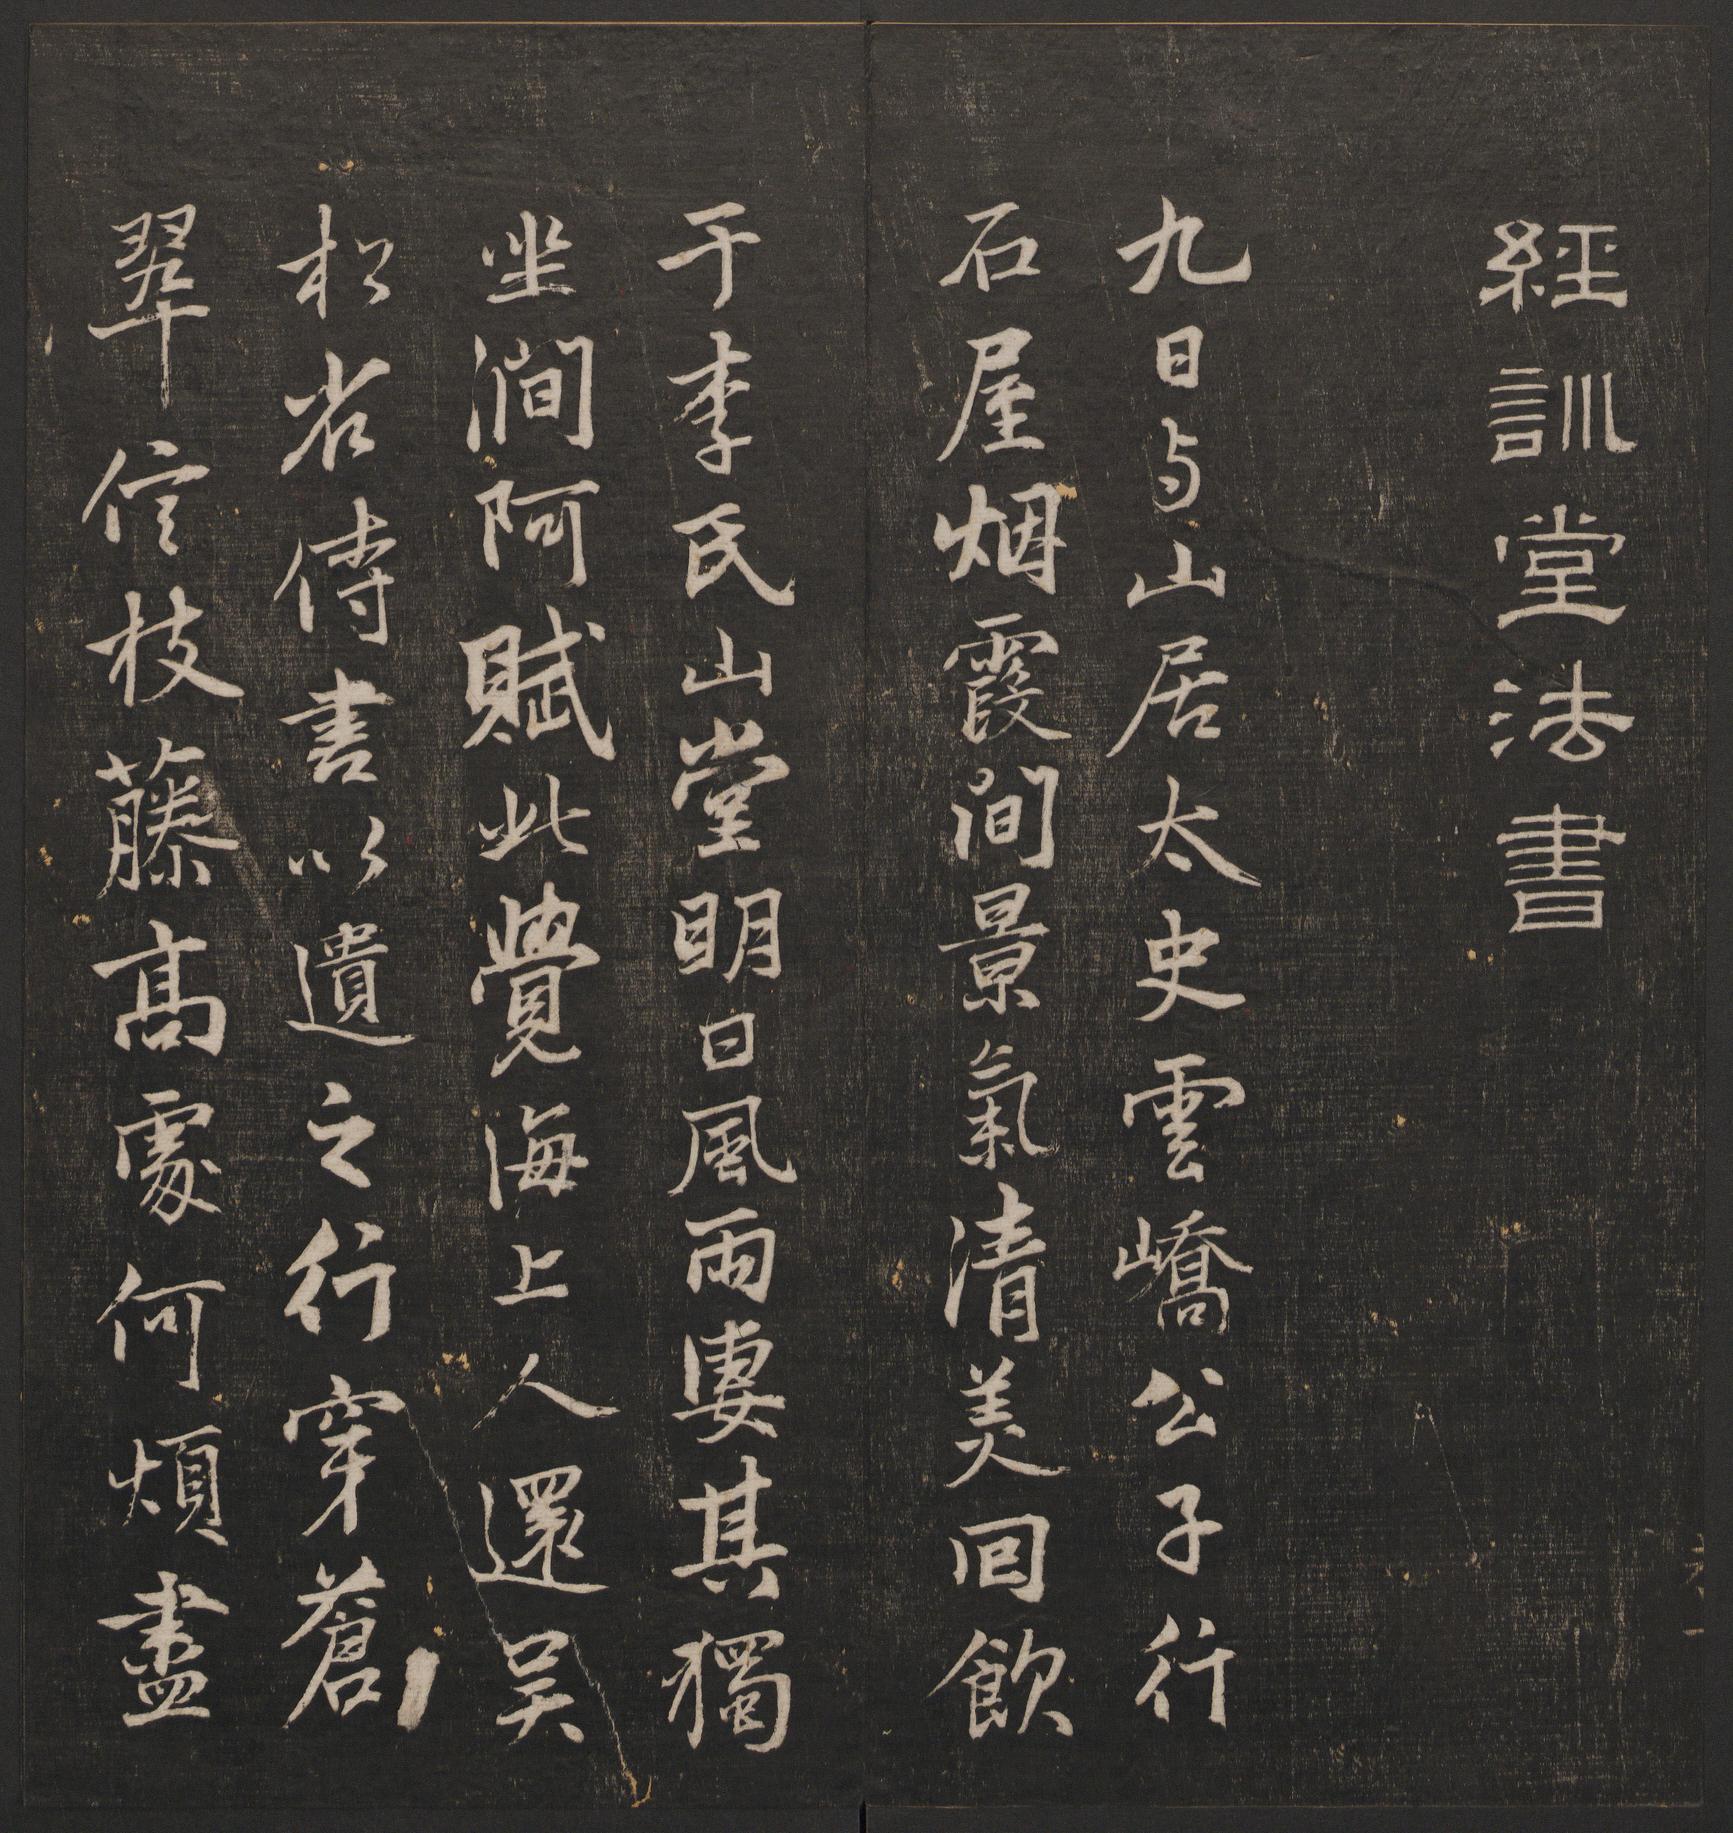 經訓堂法書
九日与山居太史雲嶠公子行
石屋烟霞澗景氣清美回飲
于李氏山堂明日風雨凄其獨
坐澗阿賦此覺海上人還吴
松省侍書以遺之行穿蒼
翠信枝藤高處何煩盡